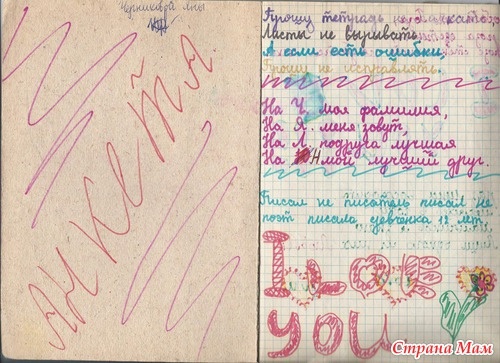 Черникавой Яны
АНКЕТА
Прошу тетрадь не
Листы не вырывать
А если есть ошибки,
Прошу не исправлять.
На Ч. моя фамилия,
На Я. меня зовут,
На Л. подруга лучшая
На Н мой лучший друг.
Писал не писатель писал не
поэт писала девчёнка 12 лет.
I LOVE
YOU
Страна Мам